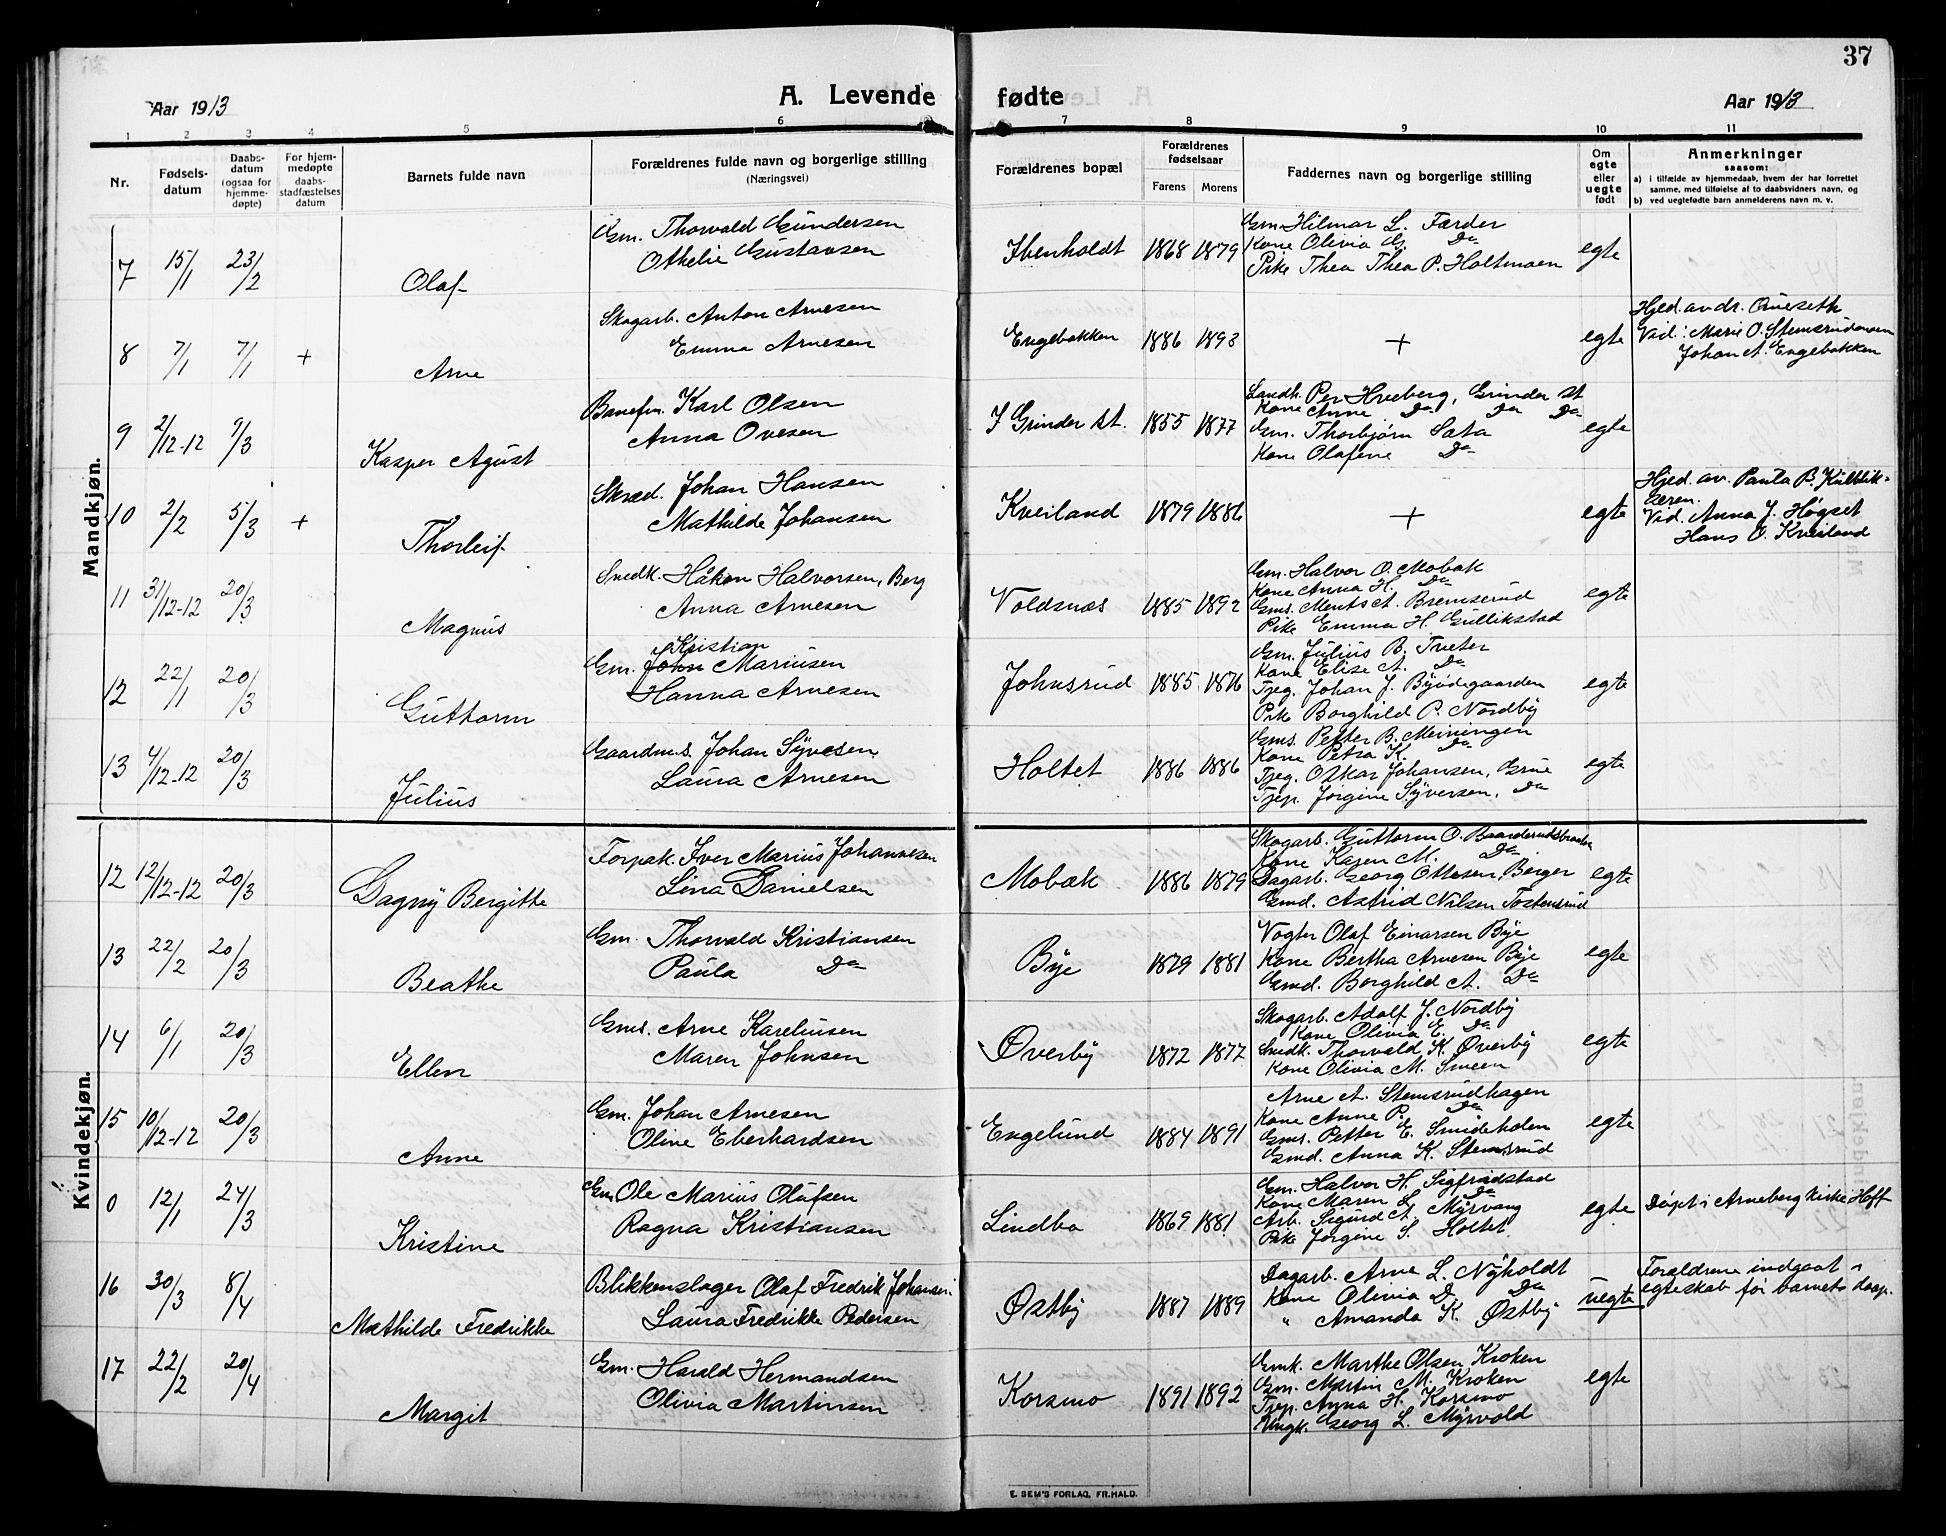 37
Aar 1913
A. Levende fødte
Aar 1913
1 2 3 4 5 6 7 8 9 10 11
Nr.
Fødsels-
datum
Daabs-
datum
(ogsaa for
hjemme-
døpte)
For hjem-
medøpte
daabs-
stadfæstelses
datum
Barnets fulde navn
Forældrenes fulde navn og borgerlige stilling
(Næringsvei)
Forældrenes bopæl
Forældrenes
fødselsaar
Farens Morens
Faddernes navn og borgerlige stilling
Om
egte
eller
uegte
født
Anmerkninger
saasom:
a) i tilfælde av hjemmedaab, hvem der har forrettet
samme, med tilføielse af to daabsvidners navn, og
b) ved uegtefødte barn anmelderens navn m. v.
Mandkjøn.
7 15/1 23/2 Olaf
Gm. Thorvald Gundersen
Othelie Gustavsen
Ibenholdt 1868 1879
Gm. Hilmar L. Færder
Kone Olivia G. Do
Pike Thea Thea P. Holtmoen
egte
8 7/1 7/1 + Arne
Skogarb. Anton Arnesen
Emma Arnesen
Engebakken 1886 1893
+
egte
Hjed. av dr. Qveseth
Vid.: Marie O. Stemsrudmoen
Johan A. Engebakken
9 2/12-12 9/3 Kasper Agust
Banefm. Karl Olsen
Anna Ovesen
I Grinder st. 1855 1877
Landh. Per Hveberg, Grinder st
Kone Anne Do Do Do
Gm. Thorbjørn Sata
Kone Olafine Do
egte
10 2/2 5/3 + Thorleif
Skræd. Johan Hansen
Mathilde Johansen
Kveiland 1879 1886
+
egte
Hjed. av. Paula P. Kulblik-
Vid. Anna J. Høgset
Hans O. Kveiland
11 31/12-12 20/3 Magnus
Snedk. Håkon Halvorsen, Berg
Anna Arnesen
Voldsnæs 1885 1892
Gm. Halvor O. Mobæk
Kone Anna H. Do
Gms. Ments A. Bremserud
Pike Emma H. Gullikstad
egte
12 22/1 20/3 Guttorm
Kristian
Gm. John Mariusen
Hanna Arnesen
Johnsrud 1885 1876
Gm. Julius B. Tveter
Kone Elise A. Do
Tjeg. Johan J. Byødegaarden
Pike Borghild P. Nordby
egte
13 4/12-12 20/3 Julius
Gaardm.s. Johan Syvesen
Laura Arnesen
Holtet 1886 1886
Gms. Petter B. Meiningen
Kone Petra K. Do
Tjeg. Oskar Johansen, Grue
Tjep. Jørgine Syversen, Do
egte
Kvindekjøn.
12 12/12-12 20/3 Dagny Bergitte
Forpak. Iver Marius Johannesen
Lina Danielsen
Mobæk 1886 1879
Skogarb. Guttorm O. Baarderudsbraaten
Kone Kajen M. Do
Dagarb. Georg Ottesen, Berger
Gmd. Astrid Nilsen Tostensrud
egte
13 22/2 20/3 Beathe
Gm. Thorvald Kristiansen
Paula Do
Bye 1879 1881
Vogter Olaf Einarsen Bye
Kone Bertha Arnesen Bye
Gmd. Borghild A. Do
egte
14 6/1 20/3 Ellen
Gms. Arne Kareliusen
Maren Johnsen
Øverby 1872 1877
Skogarb. Adolf J. Nordby
Kone Olivia E. Do
Snedk. Thorvald K. Øverby
Kone Olivia M. Smeen
egte
15 10/12-12 20/3 Anne
Gm. Johan Arnesen
Oline Eberhardsen
Engelund 1884 1891
Arne A. Stemsrudhagen
Kone Anne P. Do
Gms. Petter E. Smideholen
Gmd. Anna K. Stemsrud
egte
0 12/1 24/3 Kristine
Gm Ole Marius Olufsen
Ragna Kristiansen
Lindbo 1869 1881
Gm. Halvor H. Sigfridstad
Kone Maren L. Do
Arb. Sigurd A. Myrvang
Pike Jørgine S. Holtet
egte
Døpt i Arneberg kirke i Hoff
16 30/3 8/4 Mathilde Fredrikke
Blikkenslager Olaf Fredrik Johansen
Laura Fredrikke Pedersen
Østby 1887 1889
Dagarb. Arne L. Nyholdt
Kone Olivia D. Do
" Amanda K. Østby
uegte
Forældrene indgaat i
egteskab før barnets daap.
17 22/2 20/4 Margit
Gm. Harald Hermandsen
Olivia Martinsen
Korsmo 1891 1892
Gmk. Marthe Olsen Kroken
Gm. Martin M. Kroken
Tjep. Anna H. Korsmo
Ungk. Georg L. Myrvold
egte
E. SEM'S FORLAG, FR.HALD.